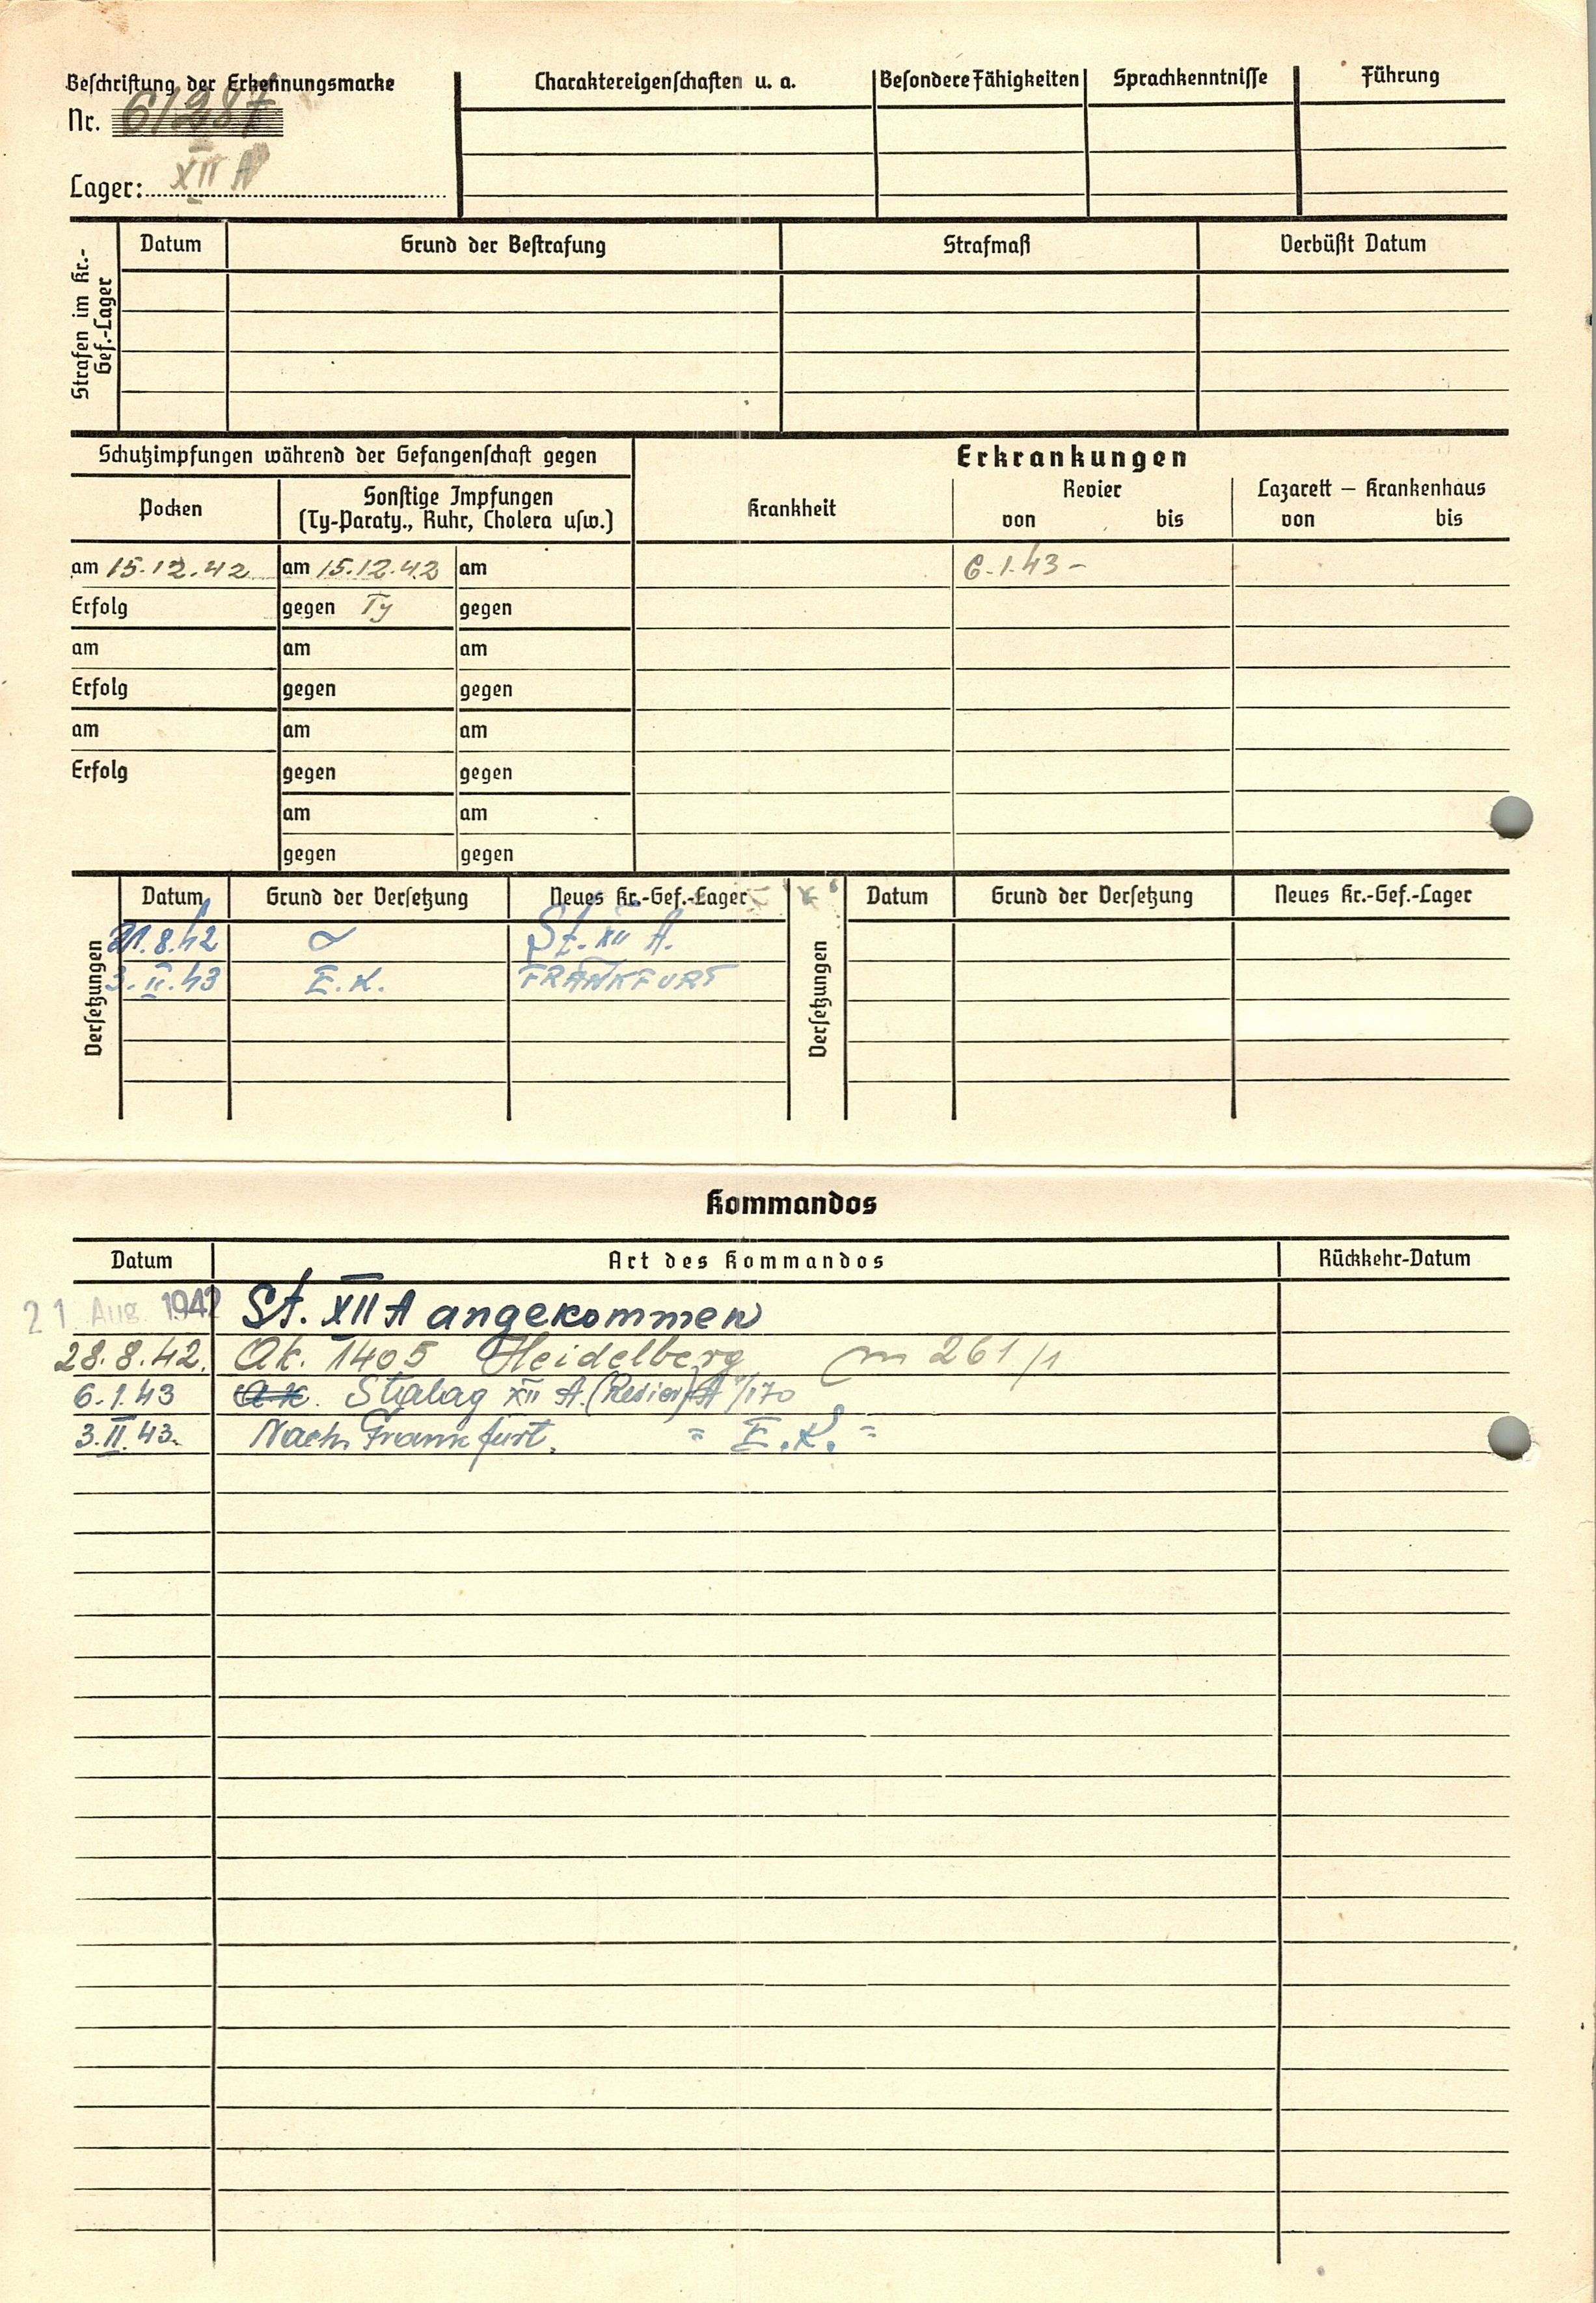 Beschriftung der Erkennungsmarke
Nr. 61287
Lager: XII A
Charaktereigenschaften u. a.
Besondere Fähigkeiten
Sprachkenntnisse
Führung
Strafen im Kr.-Gef.-Lager
Datum
Grund der Bestrafung
Strafmaß
Verbüßt Datum
Schutzimpfungen während der Gefangenschaft gegen
Erkrankungen
Pocken
Sonstige Impfungen
(Ty-Paraty., Ruhr, Cholera usw.)
Krankheit
Revier
von bis
Lazarett – Krankenhaus
von bis
am 15.12.42 am 15.12.42 am 6.1.43 -
Erfolg gegen Ty gegen
am am am
Erfolg gegen gegen
am am am
Erfolg gegen gegen
am am
gegen gegen
Versetzungen
Datum Grund der Versetzung Neues Kr.-Gef.-Lager
21.8.42 St. XII A.
3.II.43 E.K. FRANKFURT
Versetzungen
Datum Grund der Versetzung Neues Kr.-Gef.-Lager
Kommandos
Datum Art des Kommandos Rückkehr-Datum
21 Aug 1942 St. XII A angekommen
28.8.42. Ak. 1405 Heidelberg m 261/1
6.1.43 Stalag XII A. (Revier)
3.II.43. Nach Frankfurt. = E.K. =